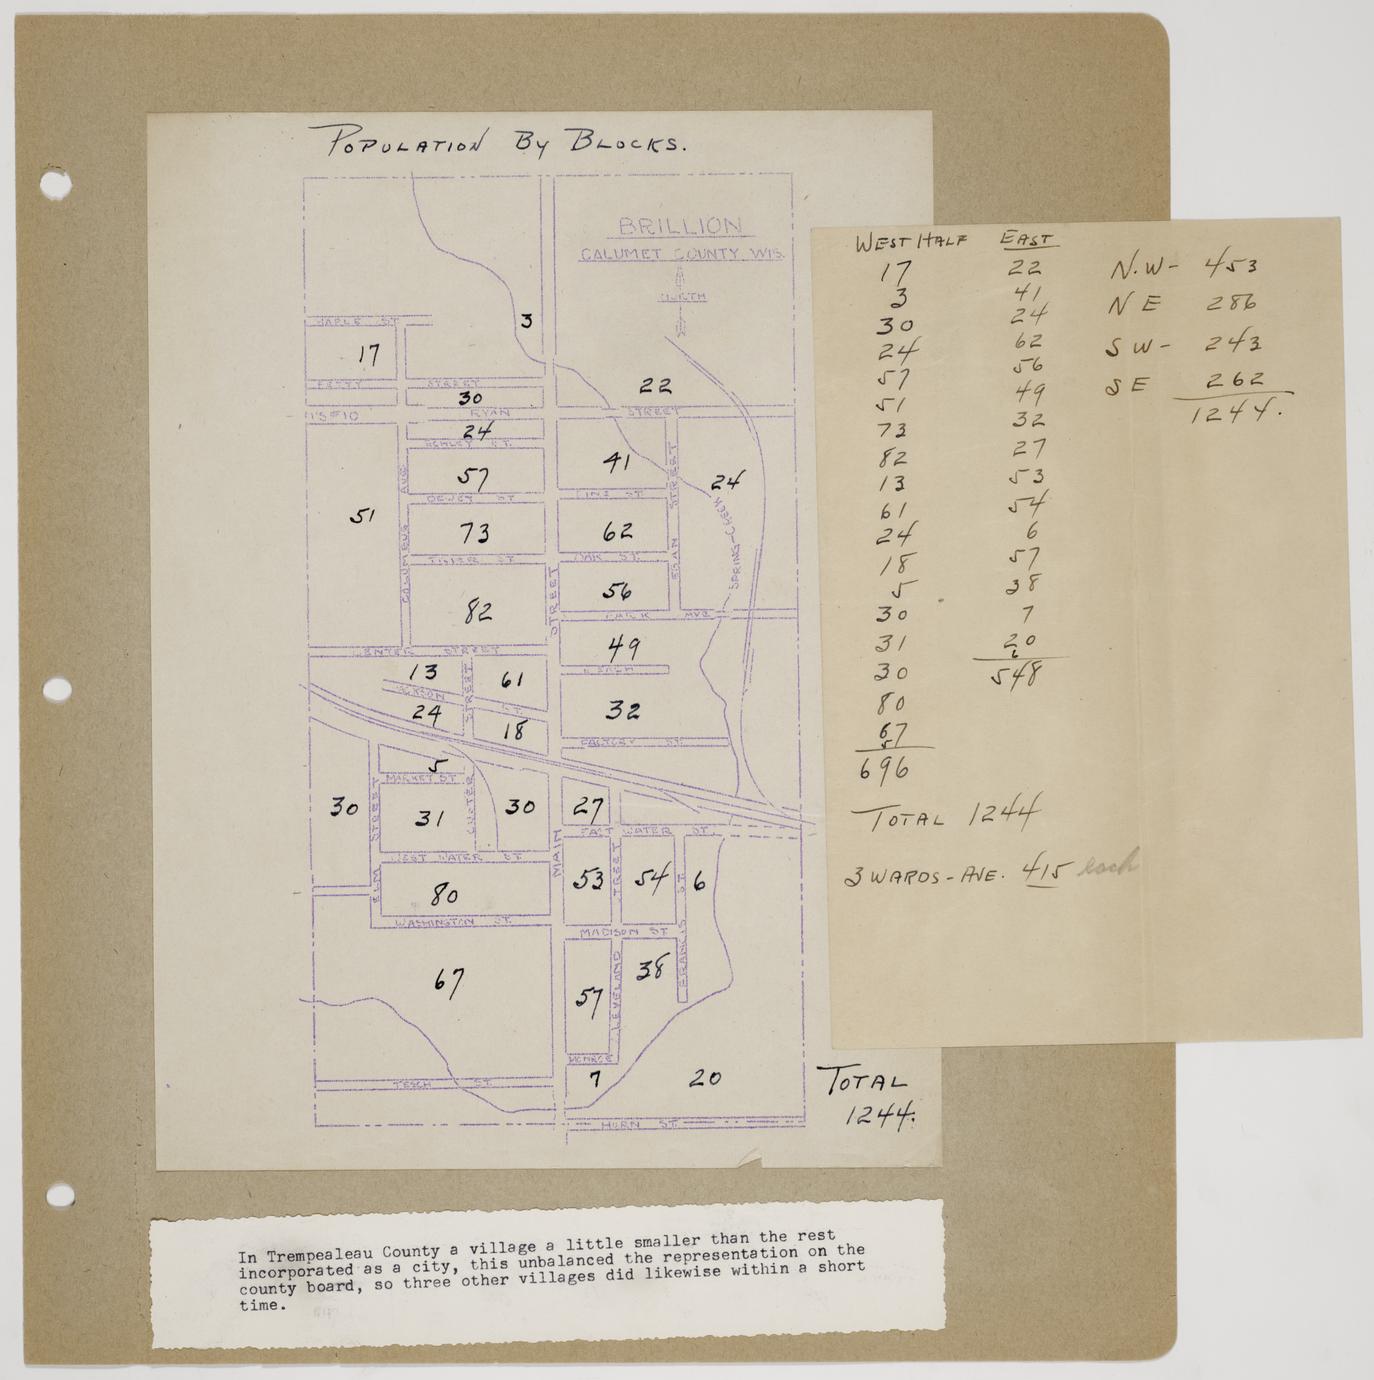 POPULATION BY BLOCKS.
BRILLION
CALUMET COUNTY, WIS.
NORTH
3
MAPLE ST
17
STREET
22
30
RYAN STREET
24
57
41
24
DEWEY ST
PINE ST
51
73
62
OAK ST.
SPRING-CREEK
EGAN STREET
COLUMBUS AVE
56
PARK AVE
82
STREET
49
CENTER STREET
13
61
STREET
24
18
ST.
32
FACTORY ST.
5
MARKET ST
30
31
30
27
EAST WATER ST.
WEST WATER ST
MAIN
ELM STREET
80
53
54
6
STREET
WASHINGTON ST.
MADISON ST
FRANCIS ST.
67
57
38
CLEVELAND
MONROE
7
20
TESCH ST.
HORN ST.
TOTAL
1244.
WEST HALF
17
3
30
24
57
51
73
82
13
61
24
18
5
30
31
30
80
67
5
696
EAST
22
41
24
62
56
49
32
27
53
54
6
57
38
7
20
6
548
N.W- 453
NE 286
SW- 243
SE 262
1244.
TOTAL 1244
3 WARDS-AVE. 415 each
In Trempealeau County a village a little smaller than the rest
incorporated as a city, this unbalanced the representation on the
county board, so three other villages did likewise within a short
time.